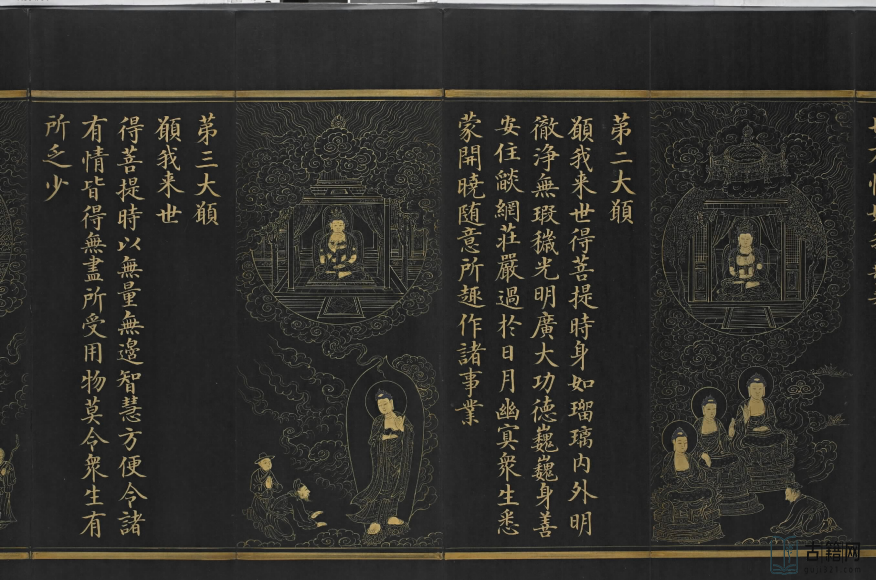 第二大願
願我来世得菩提時身如瑠璃内外明
徹浄無瑕穢光明廣大功徳巍巍身善
安住燄網莊嚴過於日月幽冥衆生悉
蒙開曉随意所趣作諸事業
第三大願
願我来世
得菩提時以無量無邊智慧方便令諸
有情皆得無盡所受用物莫令衆生有
所乏少
古籍网